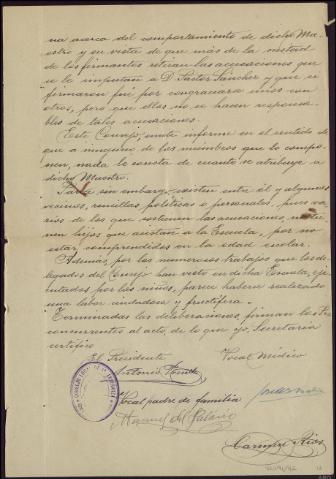 na acerca del comportamiento de dicho Maes-
tro y en vista de que más de la mitad
de los firmantes retiran las acusaciones que
se le imputan a D. Pastor Sánchez y que si
firmaron fué por congraciarse unos con
otros, pero que ellos no se hacen responsa-
bles de tales acusaciones.
Este Consejo, emite informe en el sentido de
que a ninguno de los miembros que lo compo-
nen, nada le consta de cuanto se atribuye a
dicho Maestro.
sin embargo, existen entre él y algunos
vecinos, rencillas políticas o personales, pues va-
rios de los que sostienen las acusaciones, no tie-
nen hijos que asistan a la Escuela, por no
estar comprendidos en la edad escolar.
Además, por los numerosos trabajos que los de-
legados del Consejo han visto en dicha Escuela, eje-
cutados por los niños, parece haberse realizado
una labor cuidadosa y fructífera.
Terminadas las deliberaciones, firman los
concurrentes al acto, de lo que yo, Secretaria
certifico
El Presidente Vocal Médico
Antonio
Vocal padre de familia
Manuel del Palacio
Carmen Ríos